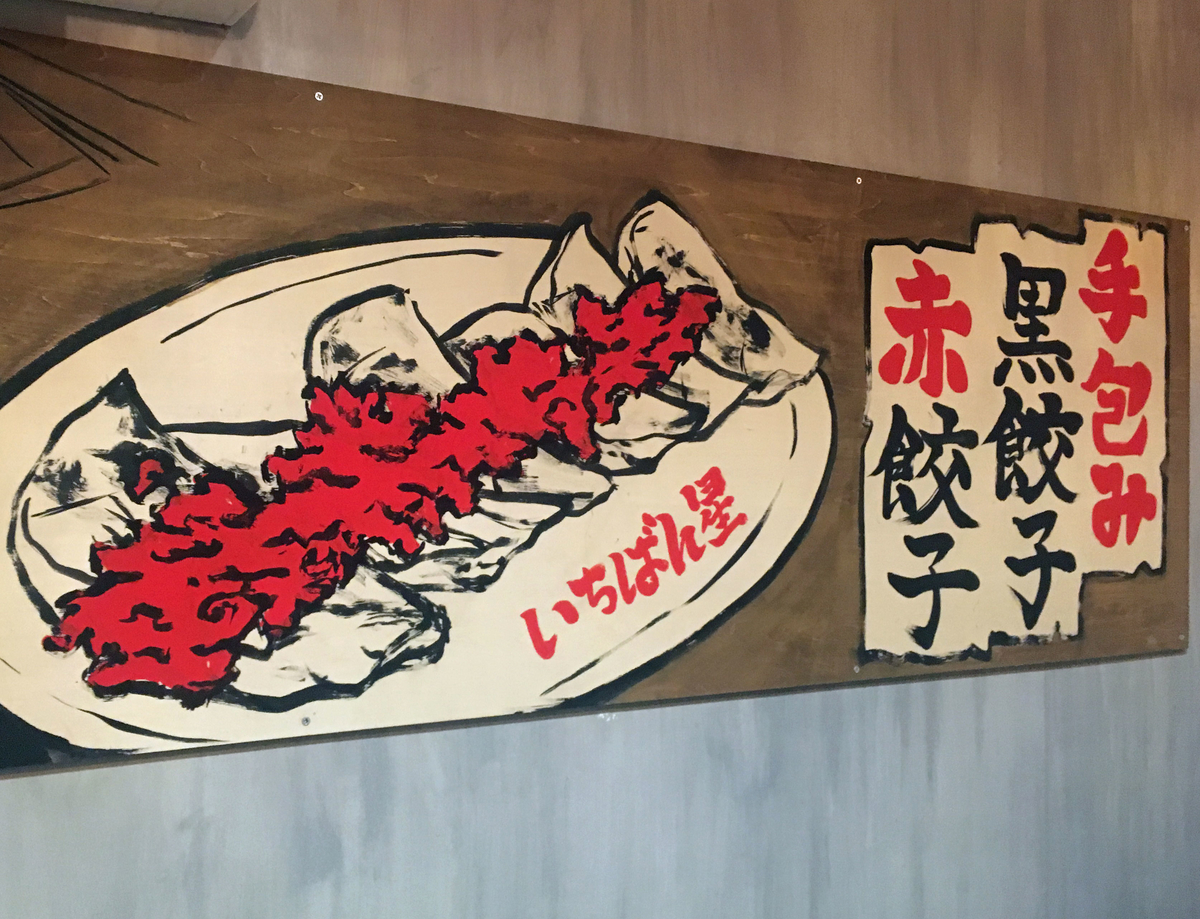 手包み
黒餃子
赤餃子
いちばん星